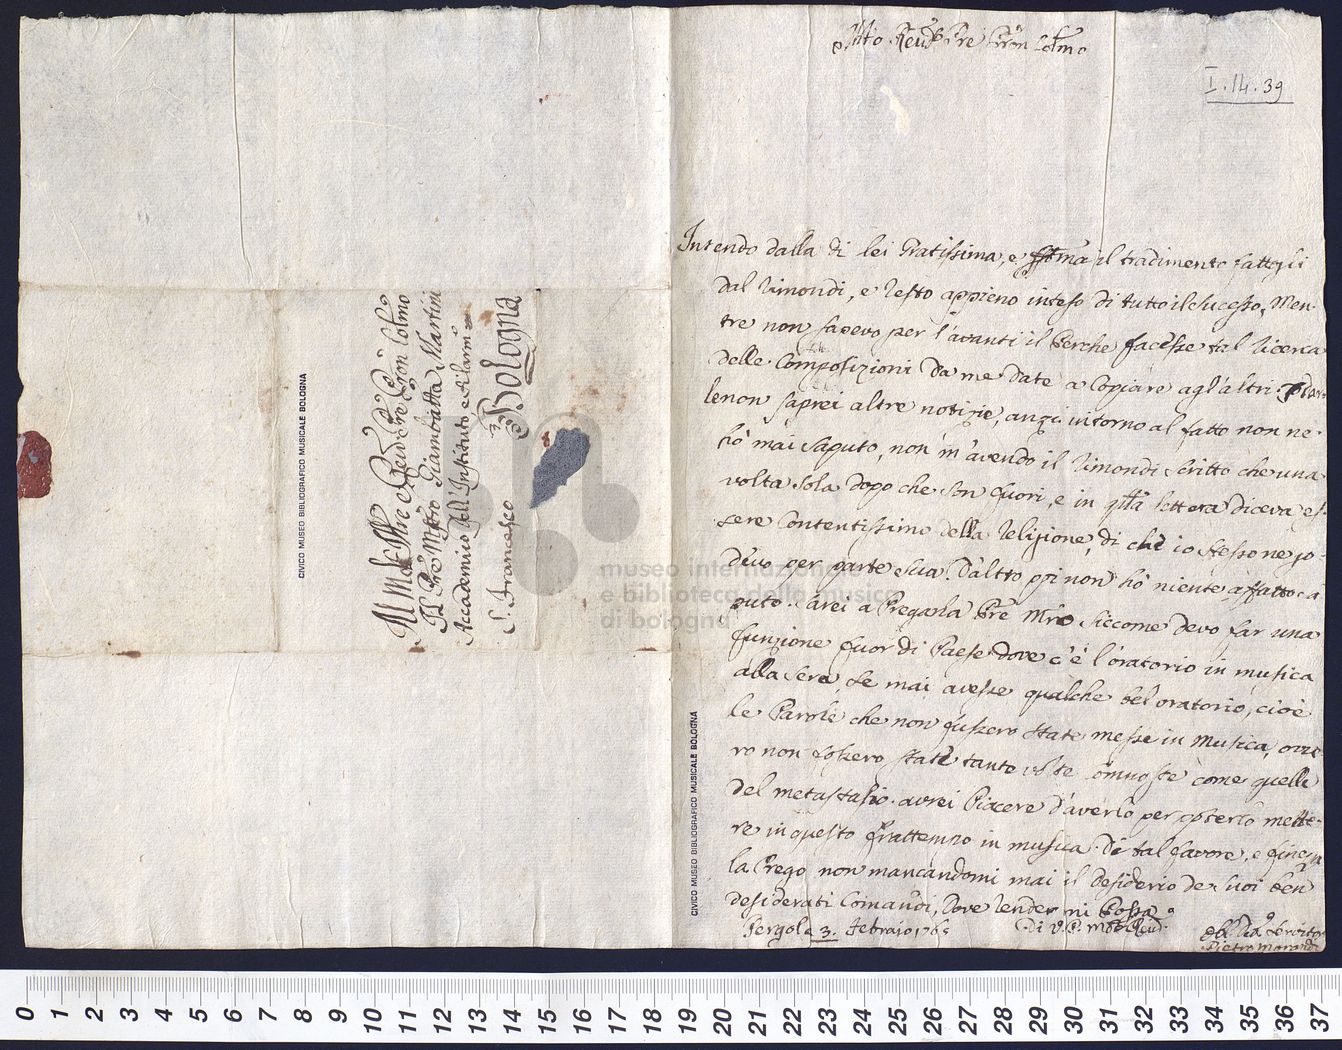 Molto Reudo Pre Pron Colmo
I. 14. 39
Intendo dalla di lei Gratissima, e il tradimento fattogli
dal Rimondi, e resto appieno inteso di tutto il sucesso, Men-
tre non sapevo per l'avanti il Perche facesse tal ricerca
delle Composizioni da me date a Copiare agl'altri.
lenon saprei altre notizie, anzi intorno al fatto non ne
hò mai saputo, non m'avendo il Rimondi scritto che una
volta sola dopo che son fuori, e in qlla lettera diceva es-
sere Contentissimo della Religione, di che io stesso ne go-
devo per parte sua. D'altro poi non hò niente affatto sa
puto. Sarei a Pregarla Pre Mro siccome devo far una
funzione fuor di Paese dove c'è l'oratorio in musica
alla sera, se mai avesse qualche bel oratorio, cioè
le Parole che non fussero state messe in Musica, ovve
ro non fossero state tanto volte composte come quelle
del metastasio. avrei Piacere d'averlo per poterlo mette-
re in questo frattempo in musica. Di tal favore, e
la Prego non mancandomi mai il desiderio de suoi ben
desiderati Comandi, dove render mi Possa
Pergola 3. Febraio 1765
Di V. P. Mto Reuda
Obb. Servitor
Pietro Morandi
Al Mto Reudo Pre Pron Colmo
Il Pre Mstro Giambatta Martini
Accademico dell'Instituto, e Filarmco
S. Francesco
Bologna
CIVICO MUSEO BIBLIOGRAFICO MUSICALE BOLOGNA
CIVICO MUSEO BIBLIOGRAFICO MUSICALE BOLOGNA
museo internazionale
e biblioteca della musica
di bologna
0 1 2 3 4 5 6 7 8 9 10 11 12 13 14 15 16 17 18 19 20 21 22 23 24 25 26 27 28 29 30 31 32 33 34 35 36 37